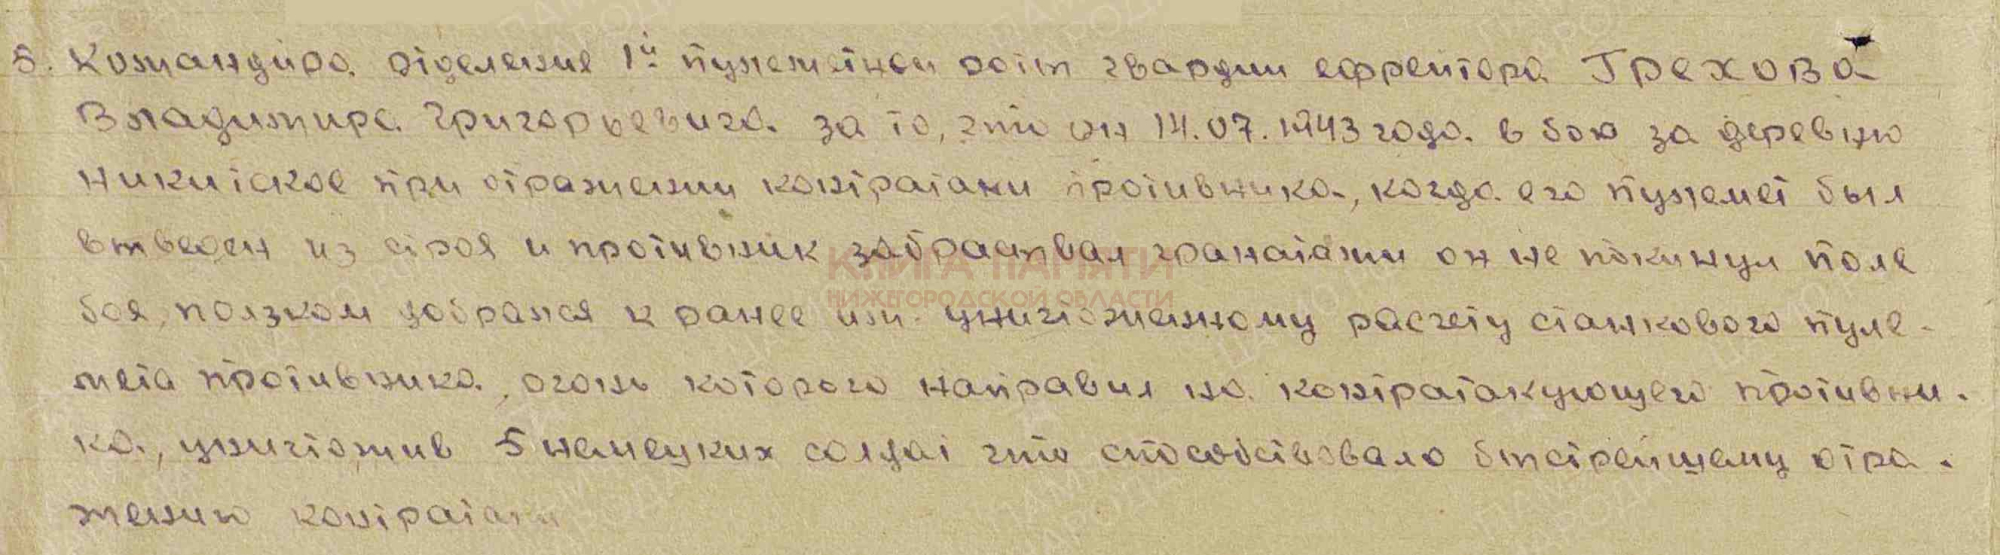 5. Командира отделение 1й пулеметной роты гвардии ефрейтора Грехова
Владимира Григорьевича за то, что он 14.07.1943 года в бою за деревню
Никитское при отражении контратаки противника, когда его пулемет был
выведен из строя и противник забрасывал гранатами он не покинул поле
боя, ползком добрался к ранее им уничтоженному расчету станкового пуле-
мета противника, огонь которого направил на контратакующего противни-
ка, уничтожив 5 немецких солдат что способствовало быстрейшему отра-
жению контратаки
КНИГА ПАМЯТИ
НИЖЕГОРОДСКОЙ ОБЛАСТИ